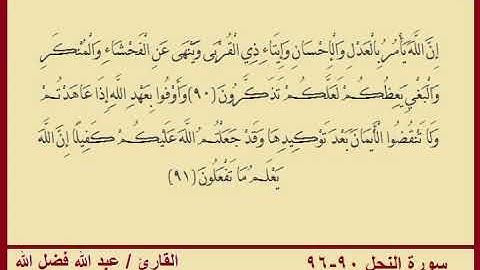 إِنَّ اللَّهَ يَأْمُرُ بِالْعَدْلِ وَالْإِحْسَانِ وَإِيتَاءِ ذِي الْقُرْبَى وَيَنْهَى عَنِ الْفَحْشَاءِ وَالْمُنْكَرِ
وَالْبَغْيِ يَعِظُكُمْ لَعَلَّكُمْ تَذَكَّرُونَ (٩٠) وَأَوْفُوا بِعَهْدِ اللَّهِ إِذَا عَاهَدْتُمْ
وَلَا تَنْقُضُوا الْأَيْمَانَ بَعْدَ تَوْكِيدِهَا وَقَدْ جَعَلْتُمُ اللَّهَ عَلَيْكُمْ كَفِيلًا إِنَّ اللَّهَ
يَعْلَمُ مَا تَفْعَلُونَ (٩١)
سورة النحل ٩٠-٩٦ القارئ / عبد الله فضل الله